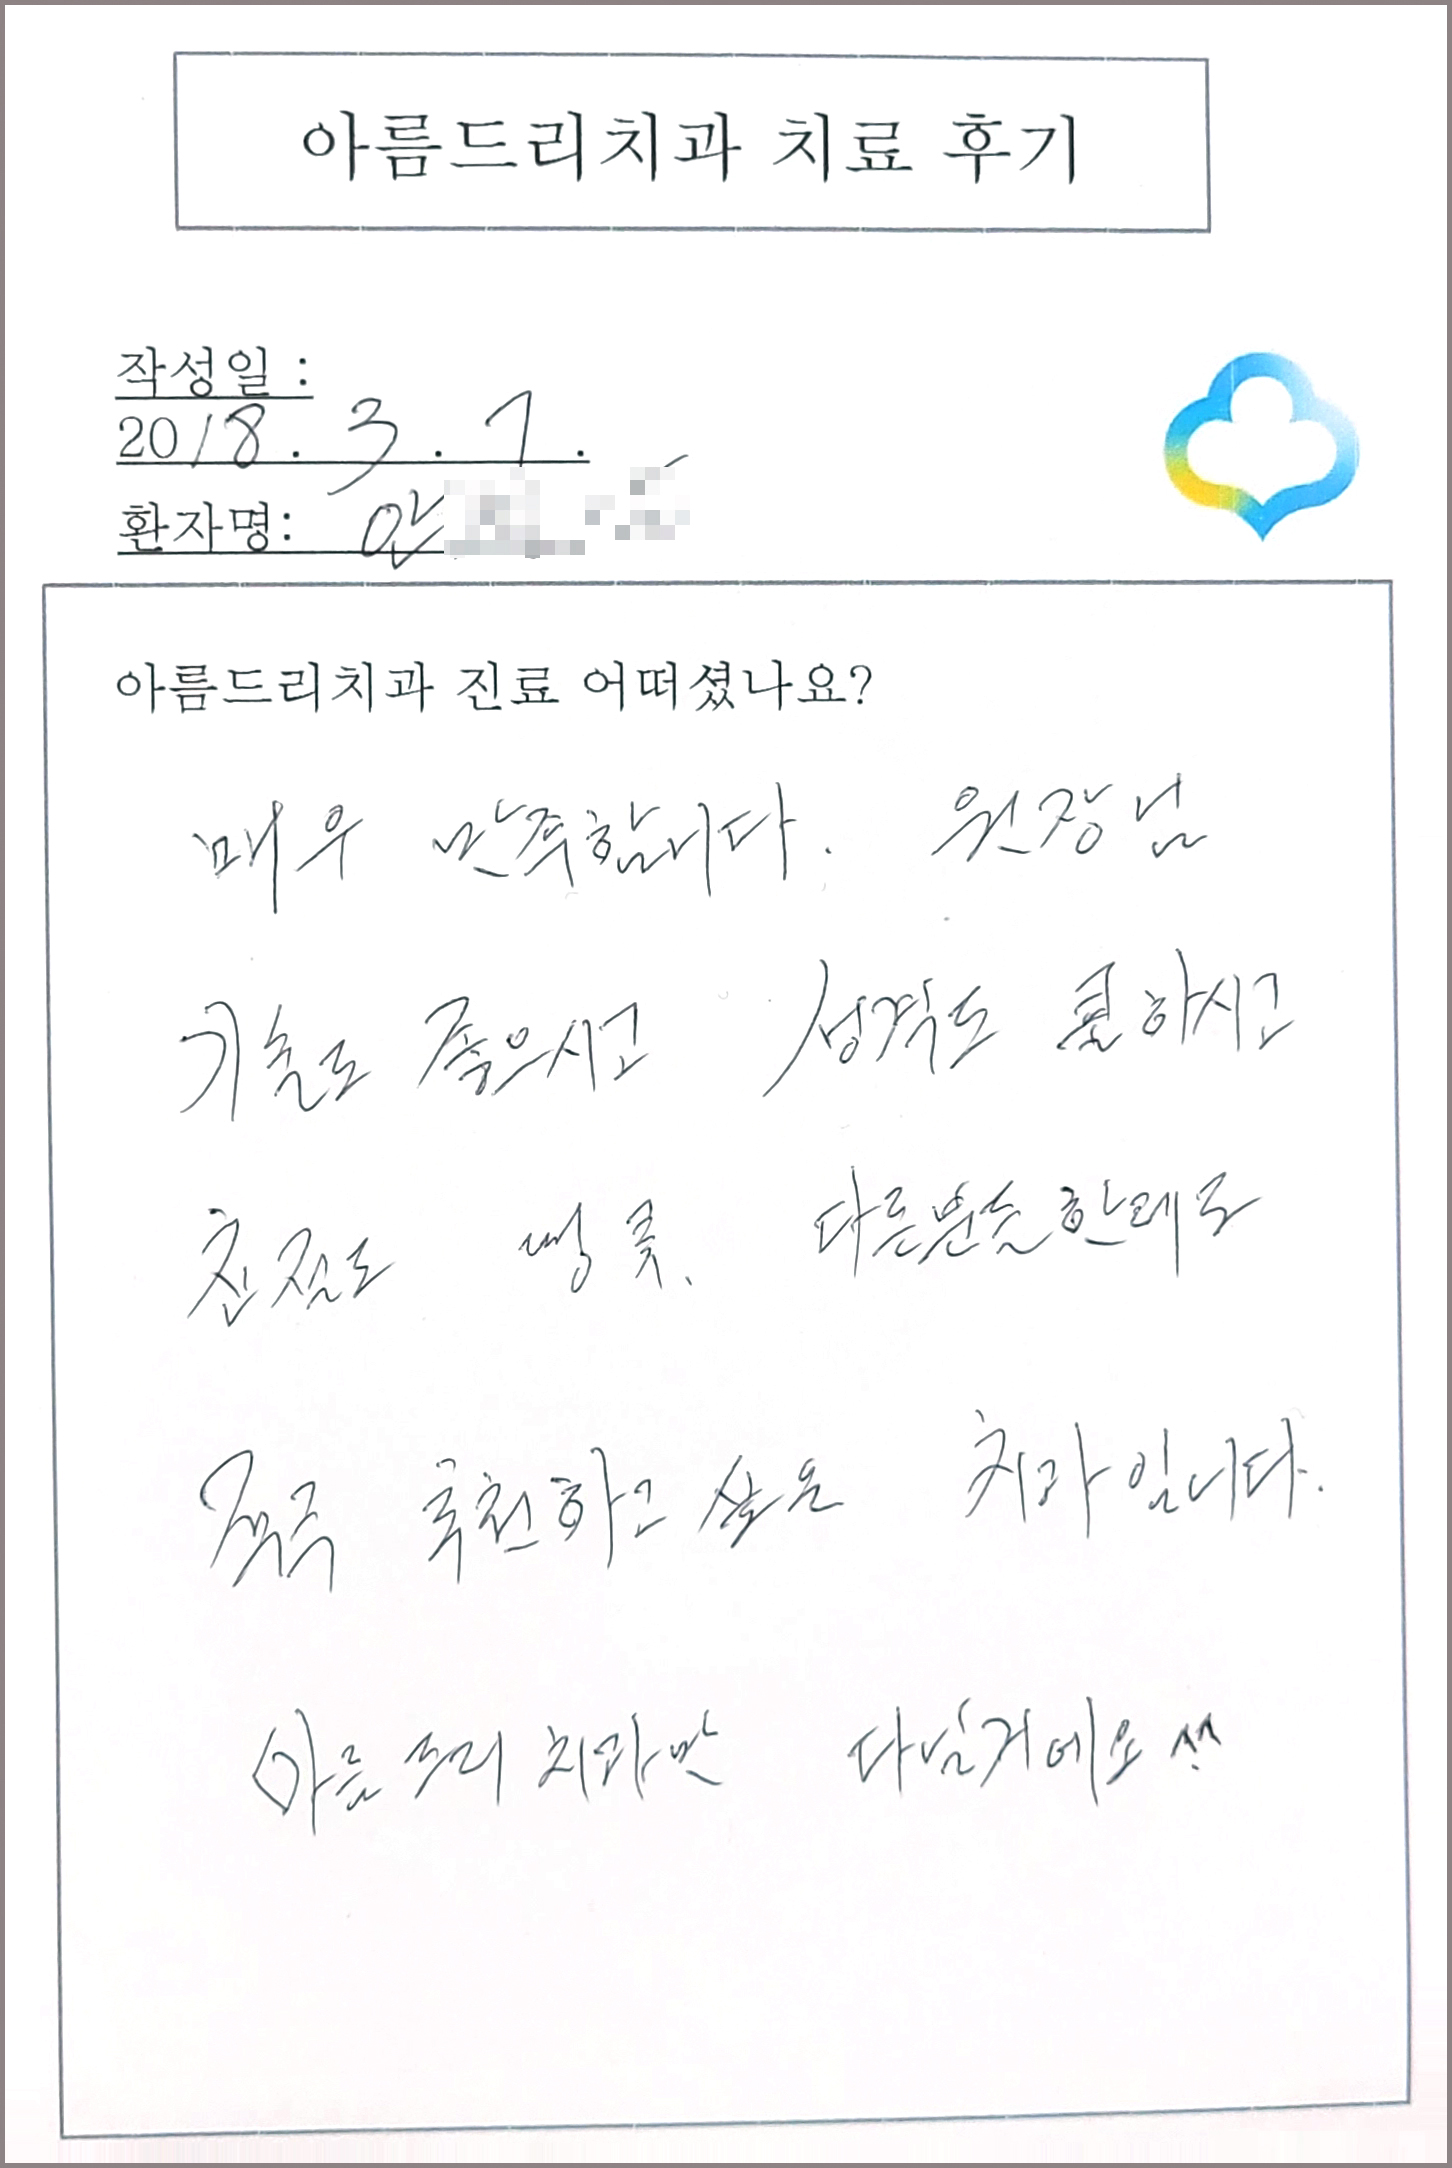 아름드리치과 치료 후기
작성일 :
2018. 3. 7.
환자명: 안
아름드리치과 진료 어떠셨나요?
매우 만족합니다. 원장님
기술도 좋으시고 성격도 쿨하시고
친절도 빵쯧. 다른분들한테도
적극 추천하고 싶은 치과입니다.
아름드리치과만 다닐거에요 ^^